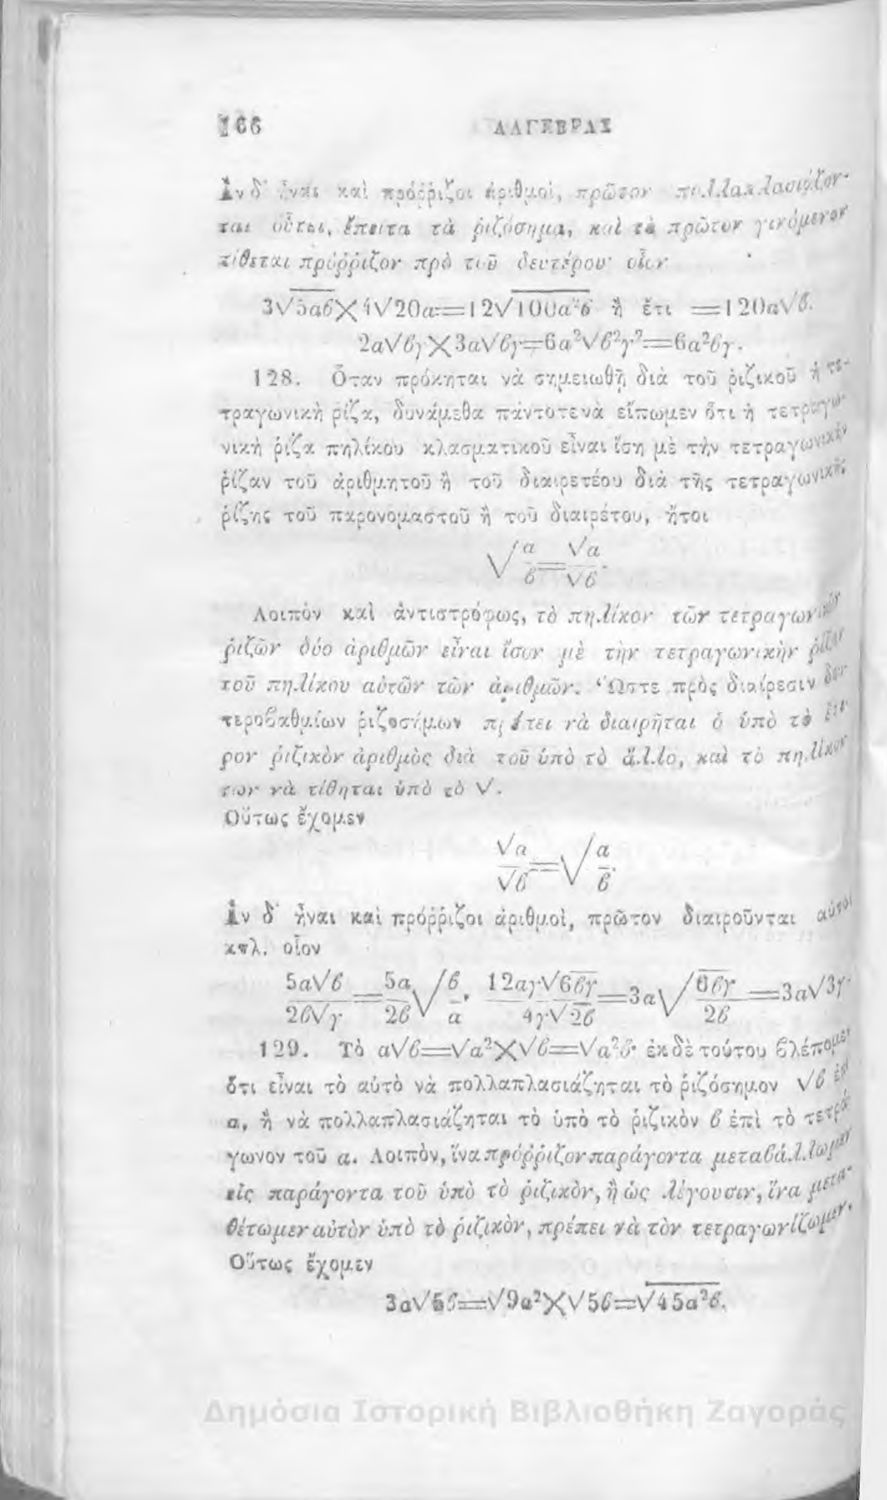 166 ΑΛΓΕΒΡΑΣ
Ἂν δ' ἦναι καὶ πρόῤῥιζοι ἀριθμοὶ, πρῶτον πολλαπλασιάζον-
ται οὗτοι, ἔπειτα τὰ ῥιζόσημα, καὶ τὸ πρῶτον γινόμενον
τίθεται πρόῤῥιζον πρὸ τοῦ δευτέρου· οἷον
3√5αϐ×4√20α=12√100α²ϐ ἢ ἔτι =120α√ϐ.
2α√ϐγ×3α√ϐγ=6α²√ϐ²γ²=6α²ϐγ.
128. Ὅταν πρόκηται νὰ σημειωθῇ διὰ τοῦ ῥιζικοῦ ἡ τε-
τραγωνικὴ ῥίζα, δυνάμεθα πάντοτε νὰ εἴπωμεν ὅτι ἡ τετραγω-
νικὴ ῥίζα πηλίκου κλασματικοῦ εἶναι ἴση μὲ τὴν τετραγωνικὴν
ῥίζαν τοῦ ἀριθμητοῦ ἢ τοῦ διαιρετέου διὰ τῆς τετραγωνικῆς
ῥίζης τοῦ παρονομαστοῦ ἢ τοῦ διαιρέτου, ἤτοι
√α/ϐ=√α/√ϐ.
Λοιπὸν καὶ ἀντιστρόφως, τὸ πηλίκον τῶν τετραγωνικῶν
ῥιζῶν δύο ἀριθμῶν εἶναι ἴσον μὲ τὴν τετραγωνικὴν ῥίζαν
τοῦ πηλίκου αὐτῶν τῶν ἀριθμῶν. Ὥστε πρὸς διαίρεσιν δευ-
τεροϐαθμίων ῥιζοσήμων πρέπει νὰ διαιρῆται ὁ ὑπὸ τὸ ἕτε-
ρον ῥιζικὸν ἀριθμὸς διὰ τοῦ ὑπὸ τὸ ἄλλο, καὶ τὸ πηλίκον
των νὰ τίθηται ὑπὸ τὸ √.
Οὕτως ἔχομεν
√α/√ϐ=√α/ϐ.
Ἂν δ' ἦναι καὶ πρόῤῥιζοι ἀριθμοὶ, πρῶτον διαιροῦνται αὐτοὶ
κτλ. οἷον
5α√ϐ/2ϐ√γ=5α/2ϐ√ϐ/α, 12αγ√6ϐγ/4γ√2ϐ=3α√6ϐγ/2ϐ=3α√3γ·
129. Τὸ α√ϐ=√α²×√ϐ=√α²ϐ· ἐκ δὲ τούτου ϐλέπομεν
ὅτι εἶναι τὸ αὐτὸ νὰ πολλαπλασιάζηται τὸ ῥιζόσημον √ϐ ἐπὶ
α, ἢ νὰ πολλαπλασιάζηται τὸ ὑπὸ τὸ ῥιζικὸν ϐ ἐπὶ τὸ τετρά-
γωνον τοῦ α. Λοιπὸν, ἵνα πρόῤῥιζον παράγοντα μεταϐάλλωμεν
εἰς παράγοντα τοῦ ὑπὸ τὸ ῥιζικὸν, ἢ ὡς λέγουσιν, ἵνα μετα-
θέτωμεν αὐτὸν ὑπὸ τὸ ῥιζικὸν, πρέπει νὰ τὸν τετραγωνίζωμεν.
Οὕτως ἔχομεν
3α√5ϐ=√9α²×√5ϐ=√45α²ϐ.
Δημόσια Ιστορική Βιβλιοθήκη Ζαγοράς